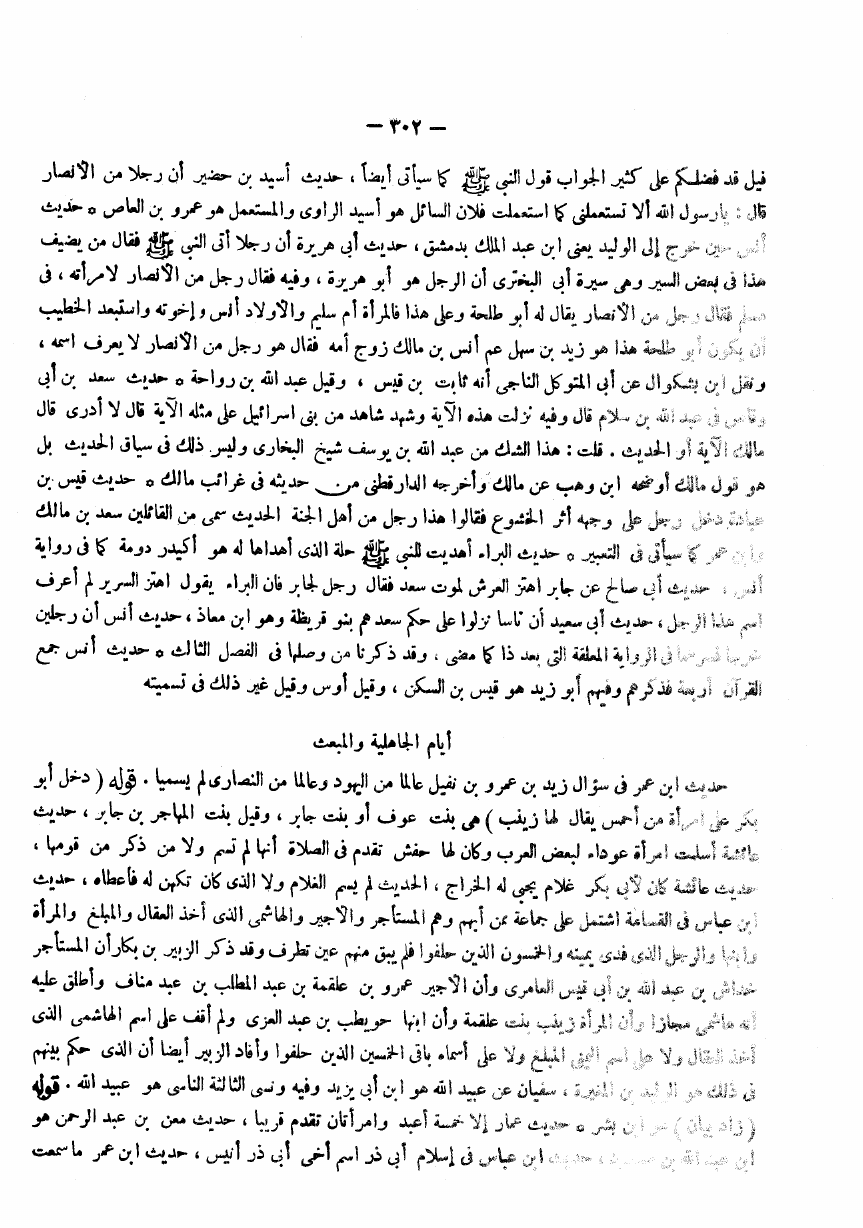 — ٣٠٢ —
فيل قد فضلكم على كثير الجواب قول النبى ﷺ كما سيأتى أيضاً ، حديث أسيد بن حضير أن رجلا من الأنصار
قال : يارسول الله ألا تستعملنى كما استعملت فلان السائل هو أسيد الراوى والمستعمل هو عمرو بن العاص * حديث
أنس حين خرج إلى الوليد يعنى ابن عبد الملك بدمشق ، حديث أبى هريرة أن رجلا أتى النبى ﷺ فقال من يضيف
هذا فى بعض السير وهى سيرة أبى البخترى أن الرجل هو أبو هريرة ، وفيه فقال رجل من الأنصار لامرأته ، فى
مسلم فقال رجل من الأنصار يقال له أبو طلحة وعلى هذا فالمرأة أم سليم والأولاد أنس وإخوته واستبعد الخطيب
أن يكون أبو طلحة هذا هو زيد بن سهل عم أنس بن مالك زوج أمه فقال هو رجل من الأنصار لا يعرف اسمه ،
ونقل ابن بشكوال عن أبى المتوكل الناجى أنه ثابت بن قيس ، وقيل عبد الله بن رواحة * حديث سعد بن أبى
وقاص فى عبد الله بن سلام قال وفيه نزلت هذه الآية وشهد شاهد من بنى اسرائيل على مثله الآية قال لا أدرى قال
مالك الآية أو الحديث . قلت : هذا الشك من عبد الله بن يوسف شيخ البخارى وليس ذلك فى سياق الحديث بل
هو قول مالك أوضحه ابن وهب عن مالك وأخرجه الدارقطنى من حديثه فى غرائب مالك * حديث قيس بن
عبادة دخل رجل على وجهه أثر الخشوع فقالوا هذا رجل من أهل الجنة الحديث سمى من القائلين سعد بن مالك
وابن عمر كما سيأتى فى التعبير * حديث البراء أهديت للنبى ﷺ حلة الذى أهداها له هو أكيدر دومة كما فى رواية
أنس ، حديث أبى صالح عن جابر اهتز العرش لموت سعد فقال رجل لجابر فان البراء يقول اهتز السرير لم أعرف
اسم هذا الرجل ، حديث أبى سعيد أن ناسا نزلوا على حكم سعد هم بنو قريظة وهو ابن معاذ ، حديث أنس أن رجلين
خرجا فى الرواية المعلقة التى بعد ذا كما مضى ، وقد ذكرنا من وصلها فى الفصل الثالث * حديث أنس جمع
القرآن أربعة فذكرهم وفيهم أبو زيد هو قيس بن السكن ، وقيل أوس وقيل غير ذلك فى تسميته
أيام الجاهلية والمبعث
حديث ابن عمر فى سؤال زيد بن عمرو بن نفيل عالما من اليهود وعالما من النصارى لم يسميا . قوله ( دخل أبو
بكر على امرأة من أحمس يقال لها زينب ) هى بنت عوف أو بنت جابر ، وقيل بنت المهاجر بن جابر ، حديث
عائشة أسلمت امرأة عوداء لبعض العرب وكان لها حفش تقدم فى الصلاة أنها لم تسم ولا من ذكر من قومها ،
حديث عائشة كان لأبى بكر غلام يحيى له الخراج ، الحديث لم يسم الغلام ولا الذى كان تكهن له فأعطاه ، حديث
ابن عباس فى القسامة اشتمل على جماعة ممن أبهم وهم المستأجر والأجير والهاشمى الذى أخذ العقال والمبلغ والمرأة
وابنها والرجل الذى فدى يمينه والخمسون الذين حلفوا فلم يبق منهم عين تطرف وقد ذكر الزبير بن بكار أن المستأجر
خداش بن عبد الله بن أبى قيس العامرى وأن الأجير عمرو بن علقمة بن عبد المطلب بن عبد مناف وأطلق عليه
أنه هاشمى مجازا وأن المرأة زينب بنت علقمة وأن ابنها حويطب بن عبد العزى ولم أقف على اسم الهاشمى الذى
أخذ العقال ولا على اسم اليمنى المبلغ ولا على أسماء باقى الخمسين الذين حلفوا وأفاد الزبير أيضا أن الذى حكم بينهم
فى ذلك هو الوليد بن المغيرة ، سفيان عن عبيد الله هو ابن أبى يزيد وفيه ونسى الثالثة الناسى هو عبيد الله . قوله
( زاد بيان ) هو ابن بشر * حديث عمار إلا خمسة أعبد وامرأتان تقدم قريبا ، حديث معن بن عبد الرحمن هو
ابن عبد الله بن ، حديث ابن عباس فى إسلام أبى ذر اسم أخى أبى ذر أنيس ، حديث ابن عمر ما سمعت